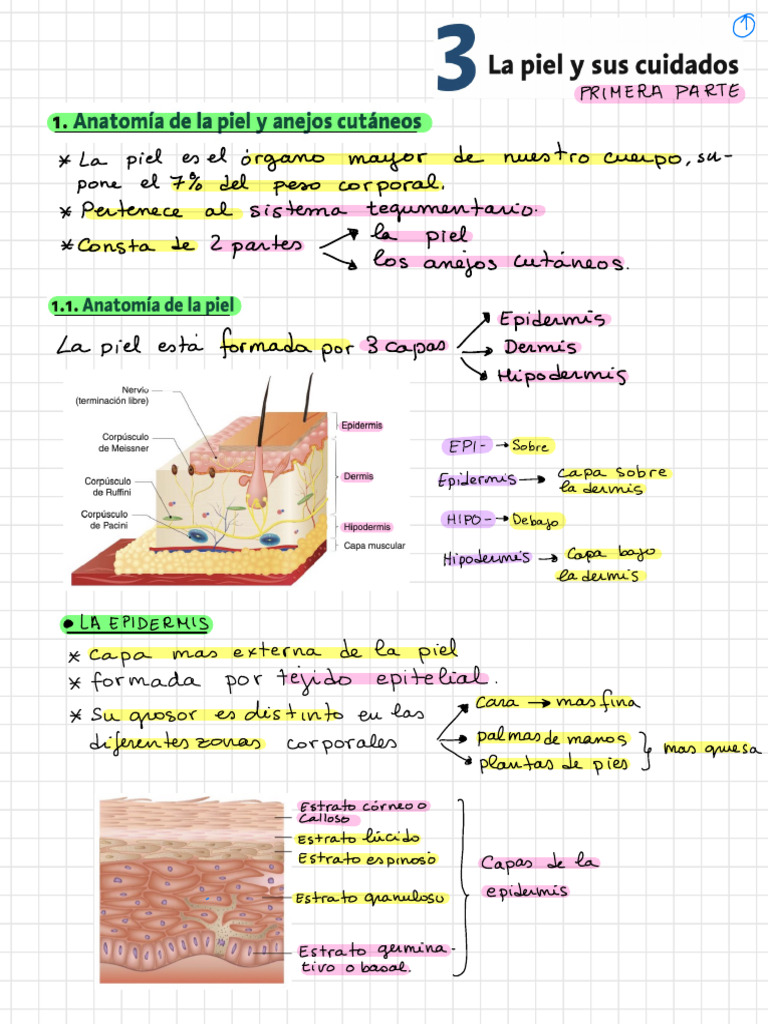 3 La piel y sus cuidados
PRIMERA PARTE
1. Anatomía de la piel y anejos cutáneos
* La piel es el órgano mayor de nuestro cuerpo, su-
pone el 7% del peso corporal.
* Pertenece al sistema tegumentario.
* Consta de 2 partes → la piel
→ los anejos cutáneos.
1.1. Anatomía de la piel
La piel está formada por 3 capas → Epidermis
→ Dermis
→ Hipodermis
Nervio
(terminación libre)
Corpúsculo
de Meissner
Corpúsculo
de Ruffini
Corpúsculo
de Pacini
Epidermis
Dermis
Hipodermis
Capa muscular
EPI- → Sobre
Epidermis → capa sobre
la dermis
HIPO- → Debajo
Hipodermis → Capa bajo
la dermis
• LA EPIDERMIS
* capa mas externa de la piel
* formada por tejido epitelial.
* Su grosor es distinto en las
diferentes zonas corporales
→ cara → mas fina
→ palmas de manos
→ plantas de pies
} mas guesa
Estrato córneo o
Calloso
Estrato lúcido
Estrato espinoso
Estrato granuloso
Estrato germina-
tivo o basal.
Capas de la
epidermis